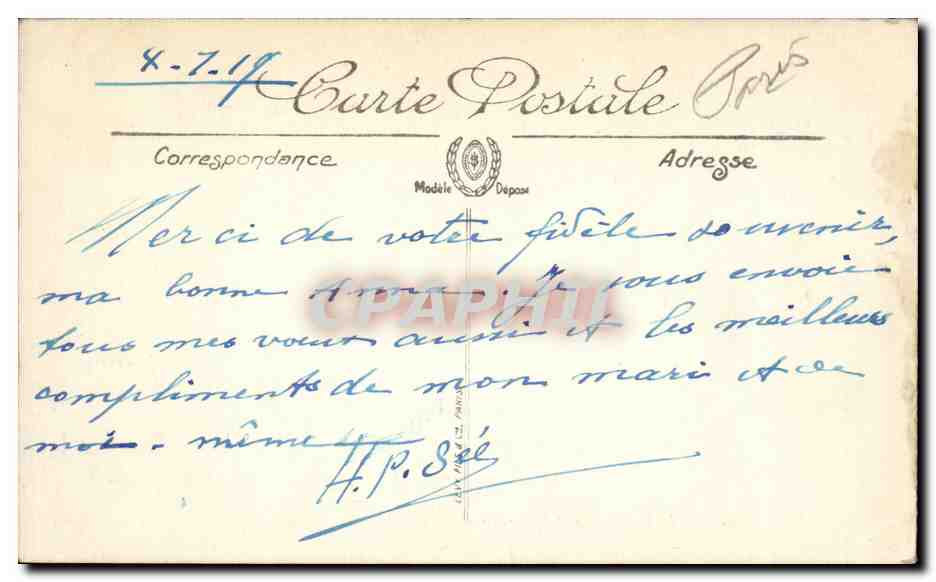 8-7-19
Carte Postale
Paris
Correspondance
Adresse
Modèle Déposé
Merci de votre fidèle souvenir,
ma bonne Anna. Je vous envoie
tous mes vœux aussi et les meilleurs
compliments de mon mari et de
moi-même
H. P. Sée
LEVY FILS & Cie, PARIS
CPAPHIL